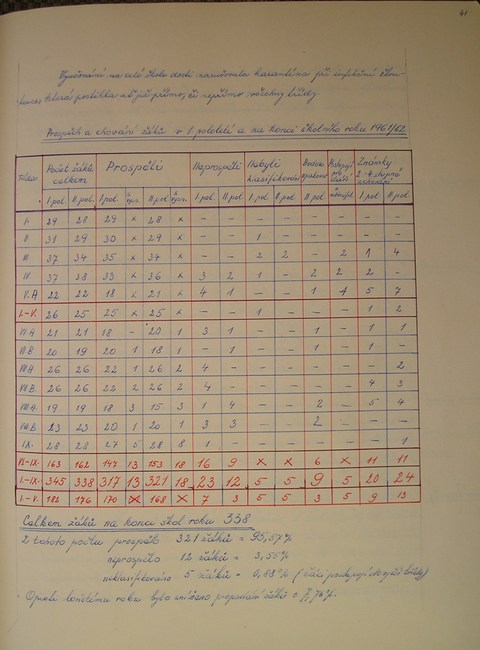 41
Vyučování na celé škole dosti narušovala karanténa při infekční žlou-
tence, která postihla ať již přímo, či nepřímo všechny třídy.
Prospěch a chování žáků v I. pololetí a na konci školního roku 1961/62
Třída Počet žáků celkem Prospěli Neprospěli Nebyli klasifikováni
Známky 2.-4. stupně z chování
I.pol. II.pol. I.pol. II.pol. I.pol. II.pol. I.pol. II.pol. I.pol. II.pol.
I. 29 28 29 x 28 x - - - - - - - -
II. 31 29 30 x 29 x - - 1 - - - - -
III. 37 34 35 x 34 x - - 2 2 - 2 1 4
IV. 37 38 33 x 36 x 3 2 1 - 2 2 2 -
V.A 22 22 18 x 21 x 4 1 - - 1 1 5 7
I.-V. 26 25 25 x 25 x - - 1 - - - 1 2
VI.A 21 21 18 - 20 1 3 1 - - 1 - 1 1
VI.B 20 19 20 1 18 1 - 1 - - 1 - 1 -
VII.A 26 26 22 1 26 2 4 - - - - - - 2
VII.B. 26 26 22 2 26 2 4 - - - - - 4 3
VIII.A. 19 19 18 3 15 3 1 4 - - 2 - 5 4
VIII.B. 23 23 20 1 20 1 3 3 - - 2 - - -
IX. 28 28 27 5 28 8 1 - - - - - - 1
VI.-IX. 163 162 147 13 153 18 16 9 x x 6 x 11 11
I.-IX. 345 338 317 13 321 18 23 12 5 5 9 5 20 24
I.-V. 182 176 170 x 168 x 7 3 5 5 3 5 9 13
Celkem žáků na konci škol. roku 338
Z tohoto počtu prospělo 321 žáků =
neprospělo 12 žáků = 3,55%
neklasifikováno 5 žáků =
Oproti loňskému roku bylo sníženo propadání žáků o